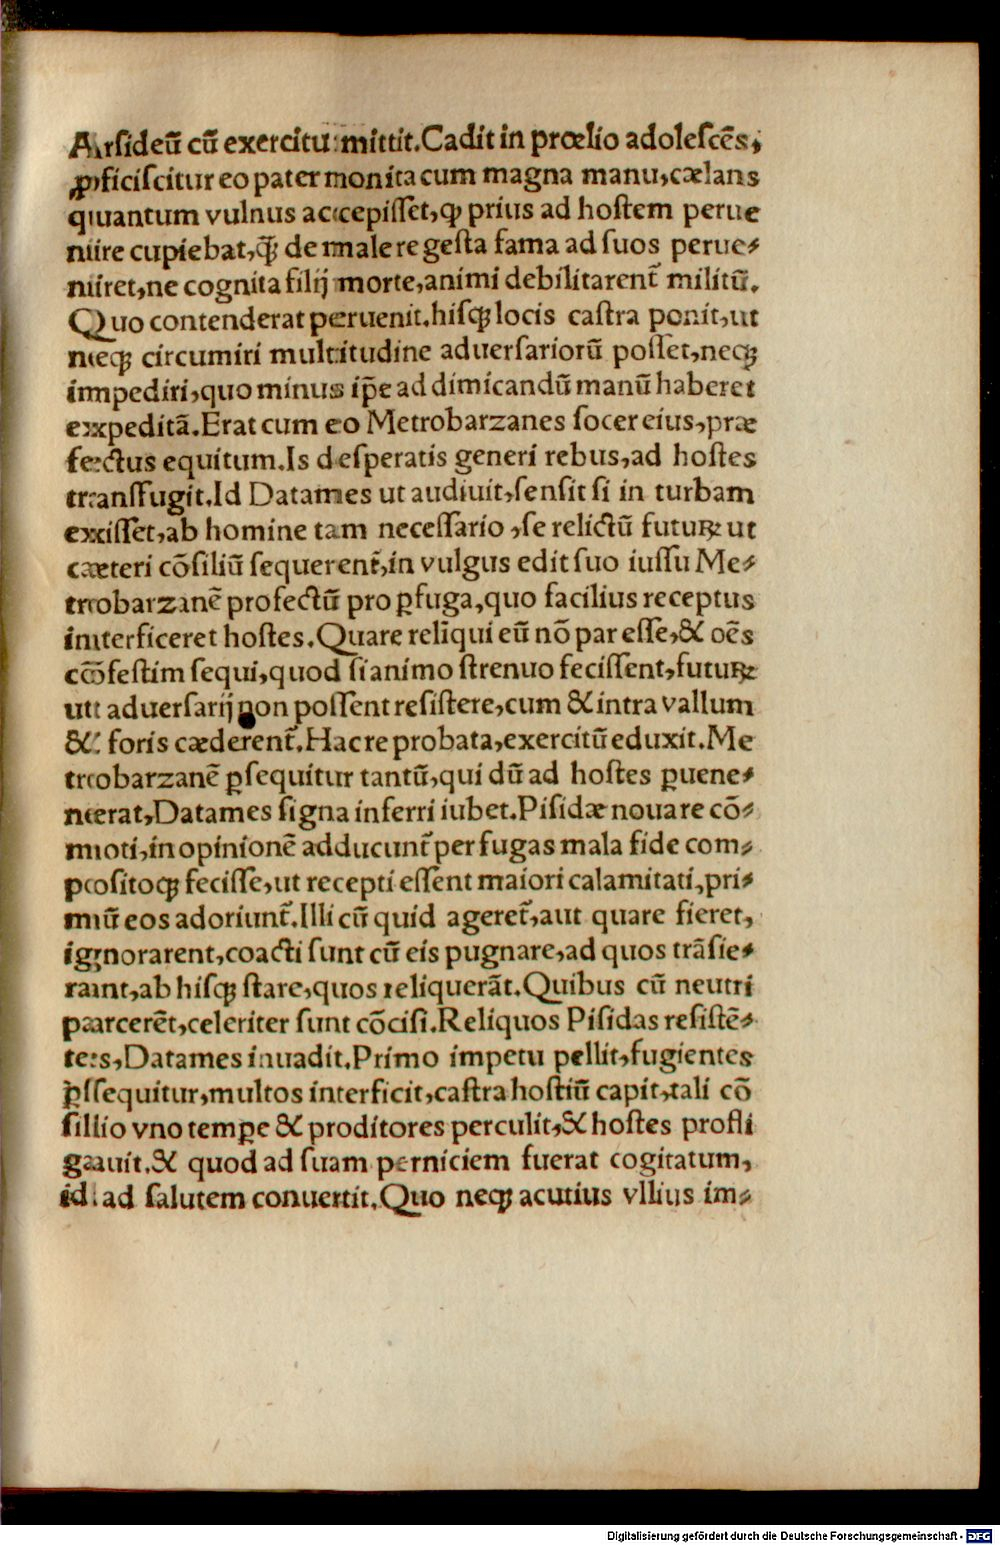 Arsideū cū exercitu mittit.Cadit in prœlio adolescēs,
ꝓficiscitur eo pater monita cum magna manu,cælans
quantum vulnus accepisset,ꝙ prius ad hostem perue
nire cupiebat,ꝙ̄ de male re gesta fama ad suos perue⸗
niret,ne cognita filij morte,animi debilitarent̄ militū.
Quo contenderat peruenit.hisqꝫ locis castra ponit,ut
neqꝫ circumiri multitudine aduersariorū posset,neqꝫ
impediri,quo minus ip̄e ad dimicandū manū haberet
expeditā.Erat cum eo Metrobarzanes socer eius,præ
fectus equitum.Is desperatis generi rebus,ad hostes
transfugit.Id Datames ut audiuit,sensit si in turbam
exisset,ab homine tam necessario,se relictū futuꝝ ut
cæteri cōsiliū sequerent̄,in vulgus edit suo iussu Me⸗
trobarzanē profectū pro ꝑfuga,quo facilius receptus
interficeret hostes.Quare reliqui eū nō par esse,& oēs
cōfestim sequi,quod si animo strenuo fecissent,futuꝝ
ut aduersarij non possent resistere,cum & intra vallum
& foris cæderent̄.Hac re probata,exercitū eduxit.Me
trobarzanē ꝑsequitur tantū,qui dū ad hostes ꝑuene⸗
nerat,Datames signa inferri iubet.Pisidæ noua re cō⸗
moti,in opinionē adducunt̄ perfugas mala fide com⸗
positoqꝫ fecisse,ut recepti essent maiori calamitati,pri⸗
mū eos adoriunt̄.Illi cū quid ageret̄,aut quare fieret,
ignorarent,coacti sunt cū eis pugnare,ad quos trāsie⸗
rant,ab hisqꝫ stare,quos reliquerāt.Quibus cū neutri
parcerēt,celeriter sunt cōcisi.Reliquos Pisidas resistē⸗
tes,Datames inuadit.Primo impetu pellit,fugientes
ꝑsequitur,multos interficit,castra hostiū capit,tali cō
silio vno tempe & proditores perculit,& hostes profli
gauit.& quod ad suam perniciem fuerat cogitatum,
id ad salutem conuertit.Quo neqꝫ acutius vllius im⸗
Digitalisierung gefördert durch die Deutsche Forschungsgemeinschaft - DFG